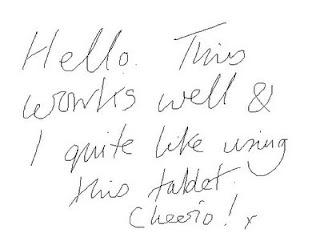 Hello. This
works well &
I quite like using
this tablet.
Cheerio! x